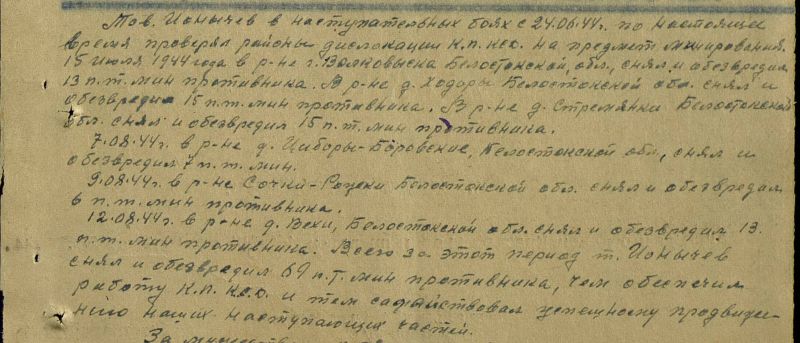 Тов. Ионычев в наступательных боях с 24.06.44г. по настоящее
время проверял районы дислокации к.п. кск. на предмет минирования.
15 июля 1944 года в р-не г. Волковыска Белостокской, обл., снял и обезвредил
13 п.т. мин противника. В р-не д. Ходоры Белостокской обл. снял и
обезвредил 15 п.т. мин противника. В р-не д. Стремянки Белостокской
обл. снял и обезвредил 15 п.т. мин противника.
7.08.44г. в р-не д. Циборы-Боровские, Белостокской обл., снял и
обезвредил 7 п.т. мин.
9.08.44г. в р-не Сочки- Белостокской обл. снял и обезвредил
6 п.т. мин противника.
12.08.44г. в р-не д. Вехи, Белостокской обл. снял и обезвредил 13
п.т. мин противника. Всего за этот период т. Ионычев
снял и обезвредил 69 п.т. мин противника, чем обеспечил
работу к.п. и тем содействовал успешному продвиже-
нию наших наступающих частей.
За